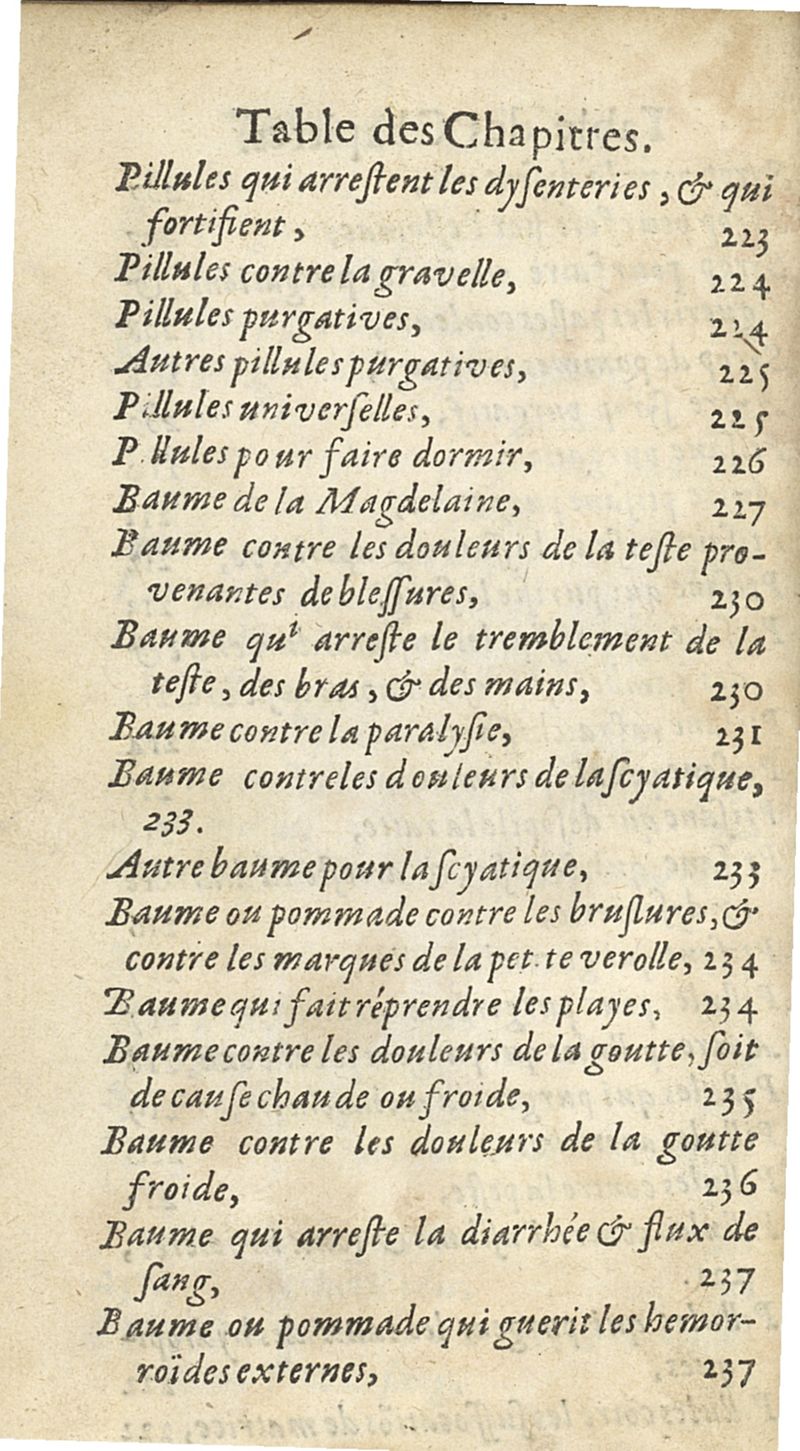 Table des Chapitres.
Pillules qui arreſtent les dyſenteries, & qui
fortifient, 223
Pillules contre la gravelle, 224
Pillules purgatives, 224
Autres pillules purgatives, 225
Pillules univerſelles, 225
P llules pour faire dormir, 226
Baume de la Magdelaine, 227
Baume contre les douleurs de la teſte pro-
venantes de bleſſures, 230
Baume qui arreſte le tremblement de la
teſte, des bras, & des mains, 230
Baume contre la paralyſie, 231
Baume contre les douleurs de la ſcyatique,
233.
Autre baume pour la ſcyatique, 233
Baume ou pommade contre les bruſlures, &
contre les marques de la pet te verolle, 234
Baume qui fait réprendre les playes, 234
Baume contre les douleurs de la goutte, ſoit
de cauſe chaude ou froide, 235
Baume contre les douleurs de la goutte
froide, 236
Baume qui arreſte la diarrhée & flux de
ſang, 237
Baume ou pommade qui guerit les hemor-
roïdes externes, 237